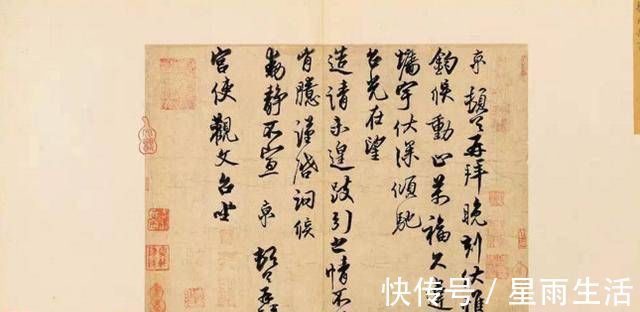 京 頓首再拜晚刻伏惟
鈞候動止萬福久違
墻宇伏深傾馳
台光在望
造請未遑跂引之情不
胷臆謹啓詞候
動靜不宣 京 頓首再
宮使觀文台坐
快传号/星雨生活